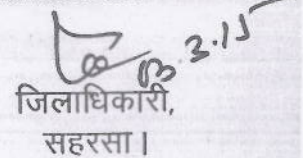 3.15
जिलाधिकारी,
सहरसा।